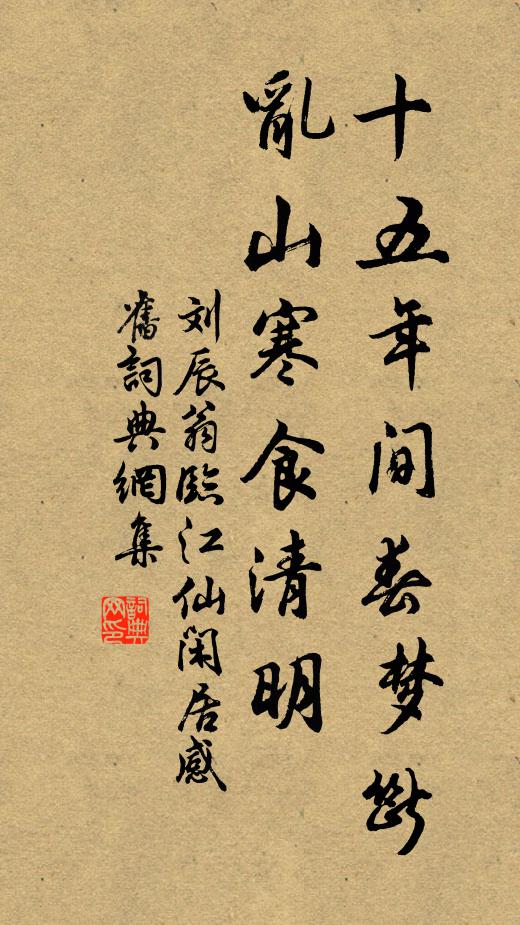 十五年间春梦断
亂山寒食清明
刘辰翁臨江仙闲居感
舊詞典網集
詞典
网印